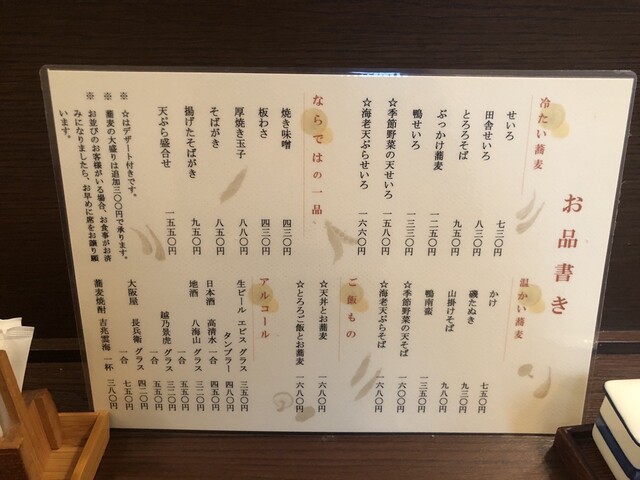 お品書き
冷たい蕎麦
せいろ 七三〇円
田舎せいろ 八三〇円
とろろそば 九五〇円
ぶっかけ蕎麦 一二五〇円
鴨せいろ 一三三〇円
☆季節野菜の天せいろ 一五八〇円
☆海老天ぷらせいろ 一六六〇円
ならではの一品
焼き味噌 四三〇円
板わさ 四三〇円
厚焼き玉子 八八〇円
そばがき 八五〇円
揚げたそばがき 九五〇円
天ぷら盛合せ 一五五〇円
※ ☆はデザート付きです。
※ 蕎麦の大盛りは追加三〇〇円で承ります。
※ お並びのお客様がいる場合、お食事がお済
みになりましたら、お早めに席をお譲り願
います。
温かい蕎麦
かけ 七五〇円
磯たぬき 九三〇円
山掛けそば 九八〇円
鴨南蛮 一三五〇円
☆季節野菜の天そば 一六〇〇円
☆海老天ぷらそば 一六八〇円
ご飯もの
☆天丼とお蕎麦 一六八〇円
☆とろろご飯とお蕎麦 一六八〇円
アルコール
生ビール エビス グラス 三五〇円
タンブラー 四八〇円
日本酒 高清水 一合 四五〇円
地酒 八海山 グラス 三二〇円
一合 五五〇円
越乃景虎 グラス 三二〇円
一合 五五〇円
大阪屋 長兵衛 グラス 四二〇円
一合 七五〇円
蕎麦焼酎 吉兆雲海 一杯 三八〇円